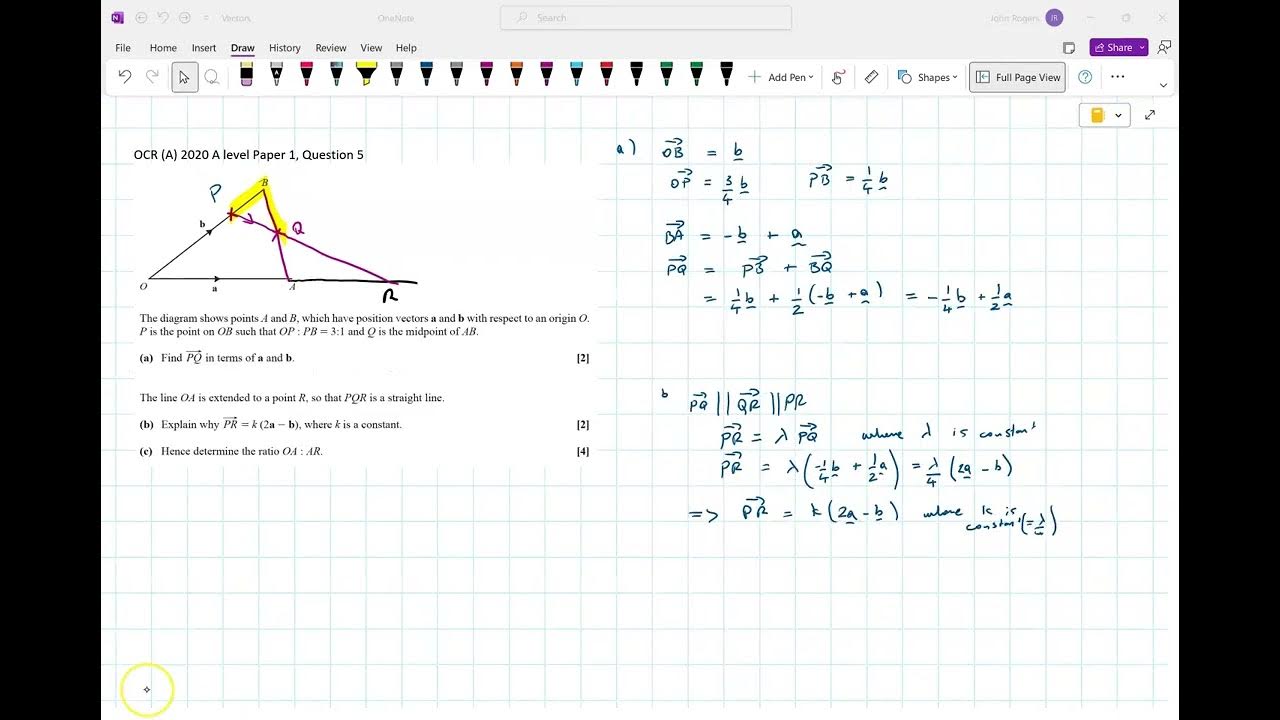 Vectors
OneNote
Search
John Rogers
JR
File Home Insert Draw History Review View Help
Share
Add Pen
Shapes
Full Page View
OCR (A) 2020 A level Paper 1, Question 5
P
B
b
Q
O
a
A
R
The diagram shows points A and B, which have position vectors a and b with respect to an origin O.
P is the point on OB such that OP : PB = 3:1 and Q is the midpoint of AB.
(a) Find PQ⃗ in terms of a and b. [2]
The line OA is extended to a point R, so that PQR is a straight line.
(b) Explain why PR⃗ = k (2a − b), where k is a constant. [2]
(c) Hence determine the ratio OA : AR. [4]
a) OB⃗ = b
OP⃗ = 3/4 b PB⃗ = 1/4 b
BA⃗ = -b + a
PQ⃗ = PB⃗ + BQ⃗
= 1/4 b + 1/2 (-b + a) = -1/4 b + 1/2 a
b PQ⃗ || QR⃗ || PR
PR⃗ = λ PQ⃗ where λ is constant
PR⃗ = λ (-1/4 b + 1/2 a) = λ/4 (2a - b)
=> PR⃗ = k (2a - b) where k is
constant (= λ/4)